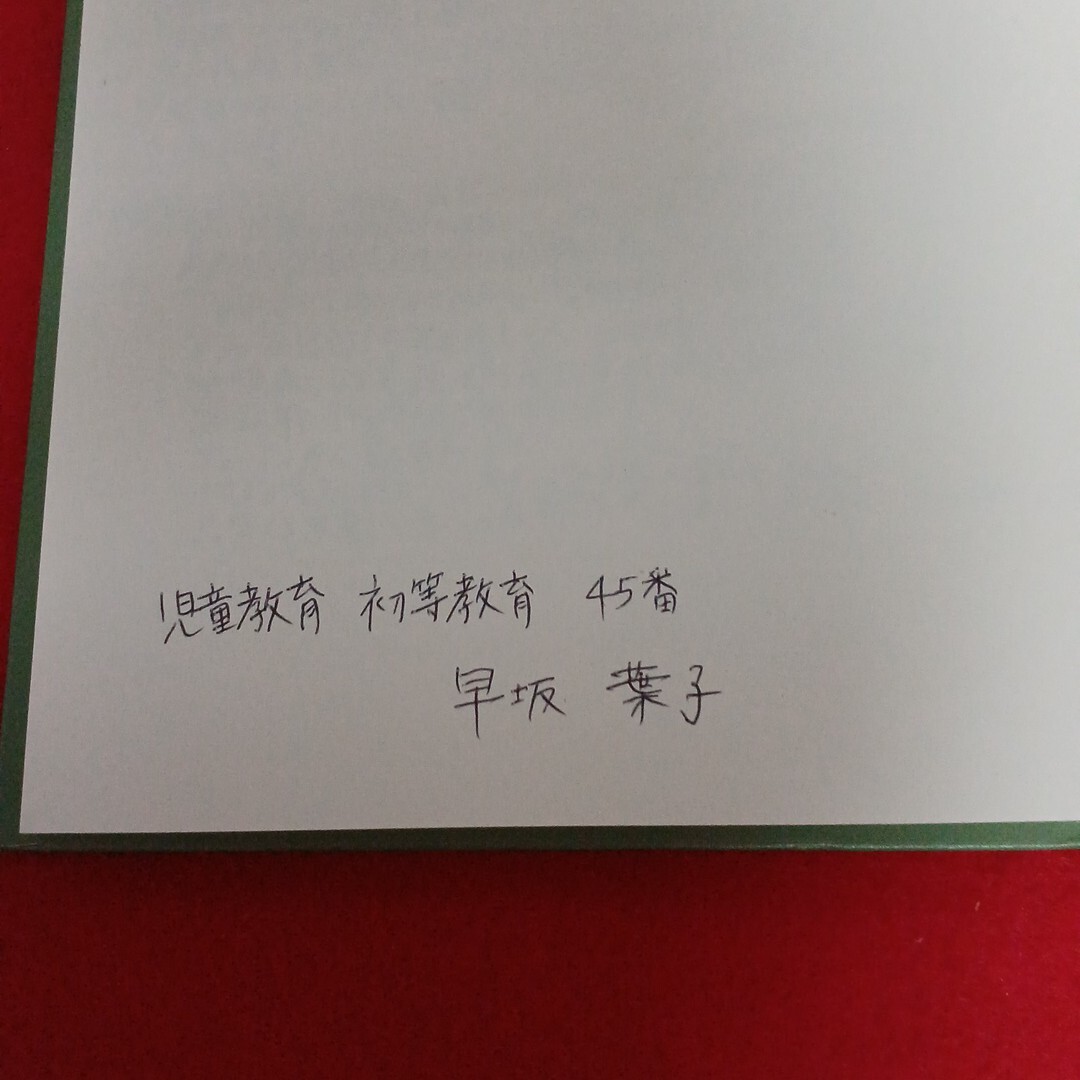 児童教育 初等教育 45番
早坂 葉子